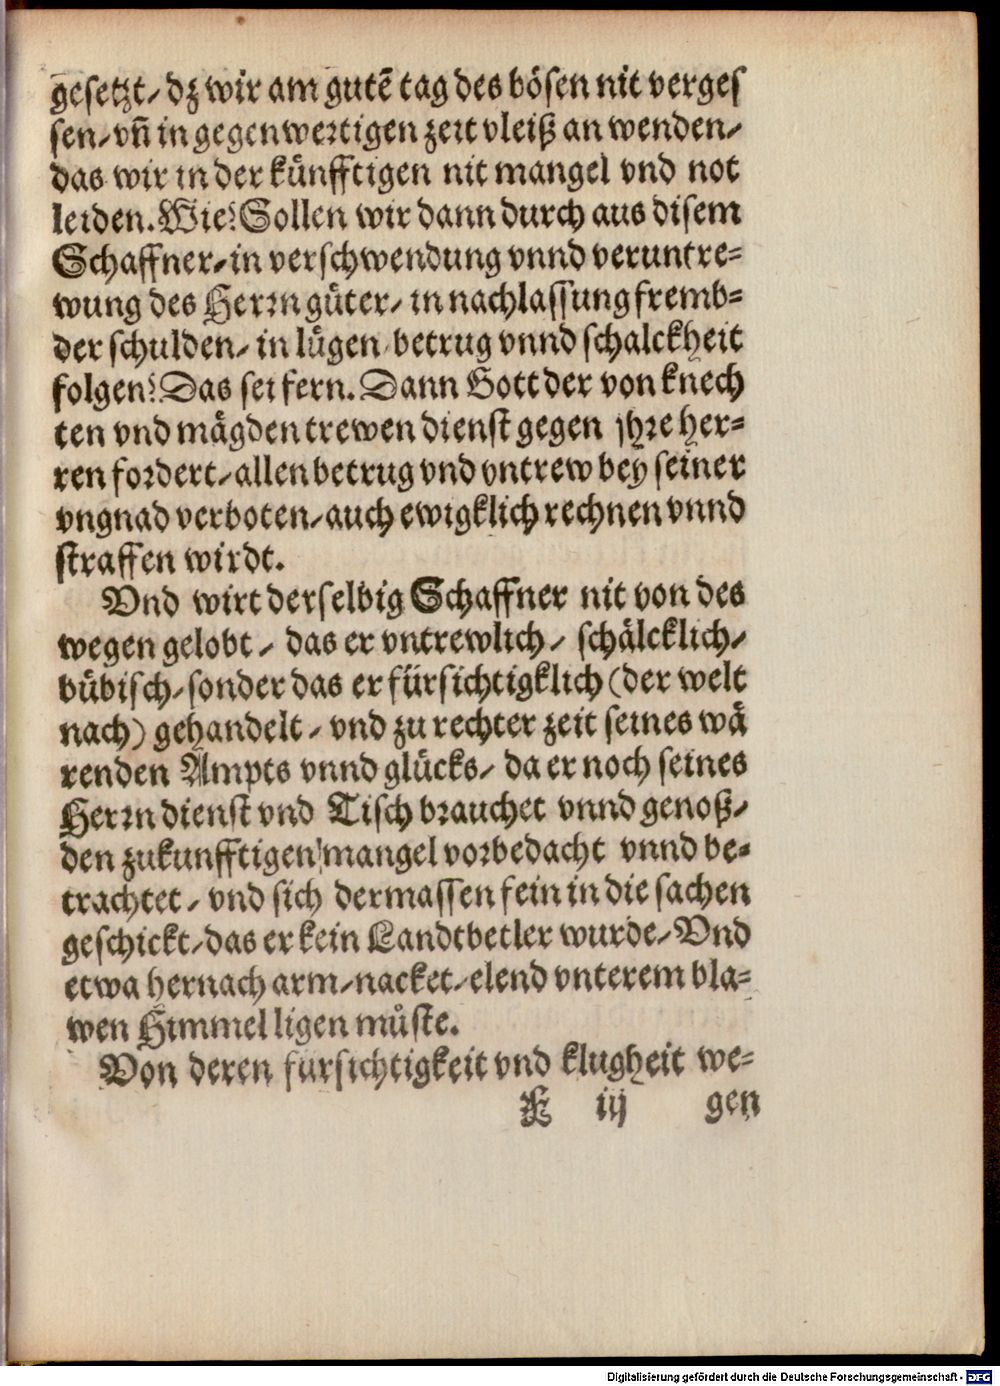 gesetzt / dz wir am gutē tag des bösen nit verges
sen / vn̄ in gegenwertigen zeit vleiß an wenden /
das wir in der künfftigen nit mangel vnd not
leiden. Wie? Sollen wir dann durch aus disem
Schaffner / in verschwendung vnnd veruntre=
wung des Herrn güter / in nachlassung fremb=
der schulden / in lügen / betrug vnnd schalckheit
folgen? Das sei fern. Dann Gott der von knech
ten vnd mägden trewen dienst gegen jhre her=
ren fordert / allen betrug vnd vntrew bey seiner
vngnad verboten / auch ewigklich rechnen vnnd
straffen wirdt.
Vnd wirt derselbig Schaffner nit von des
wegen gelobt / das er vntrewlich / schälcklich /
bübisch / sonder das er fürsichtigklich (der welt
nach) gehandelt / vnd zu rechter zeit seines wä
renden Ampts vnnd glücks / da er noch seines
Herrn dienst vnd Tisch brauchet vnnd genoß /
den zukunfftigen mangel vorbedacht vnnd be=
trachtet / vnd sich dermassen fein in die sachen
geschickt / das er kein Landtbetler wurde / Vnd
etwa hernach arm / nacket / elend vnterem bla=
wen Himmel ligen müste.
Von deren fursichtigkeit vnd klugheit we=
E iij gen
Digitalisierung gefördert durch die Deutsche Forschungsgemeinschaft - DFG